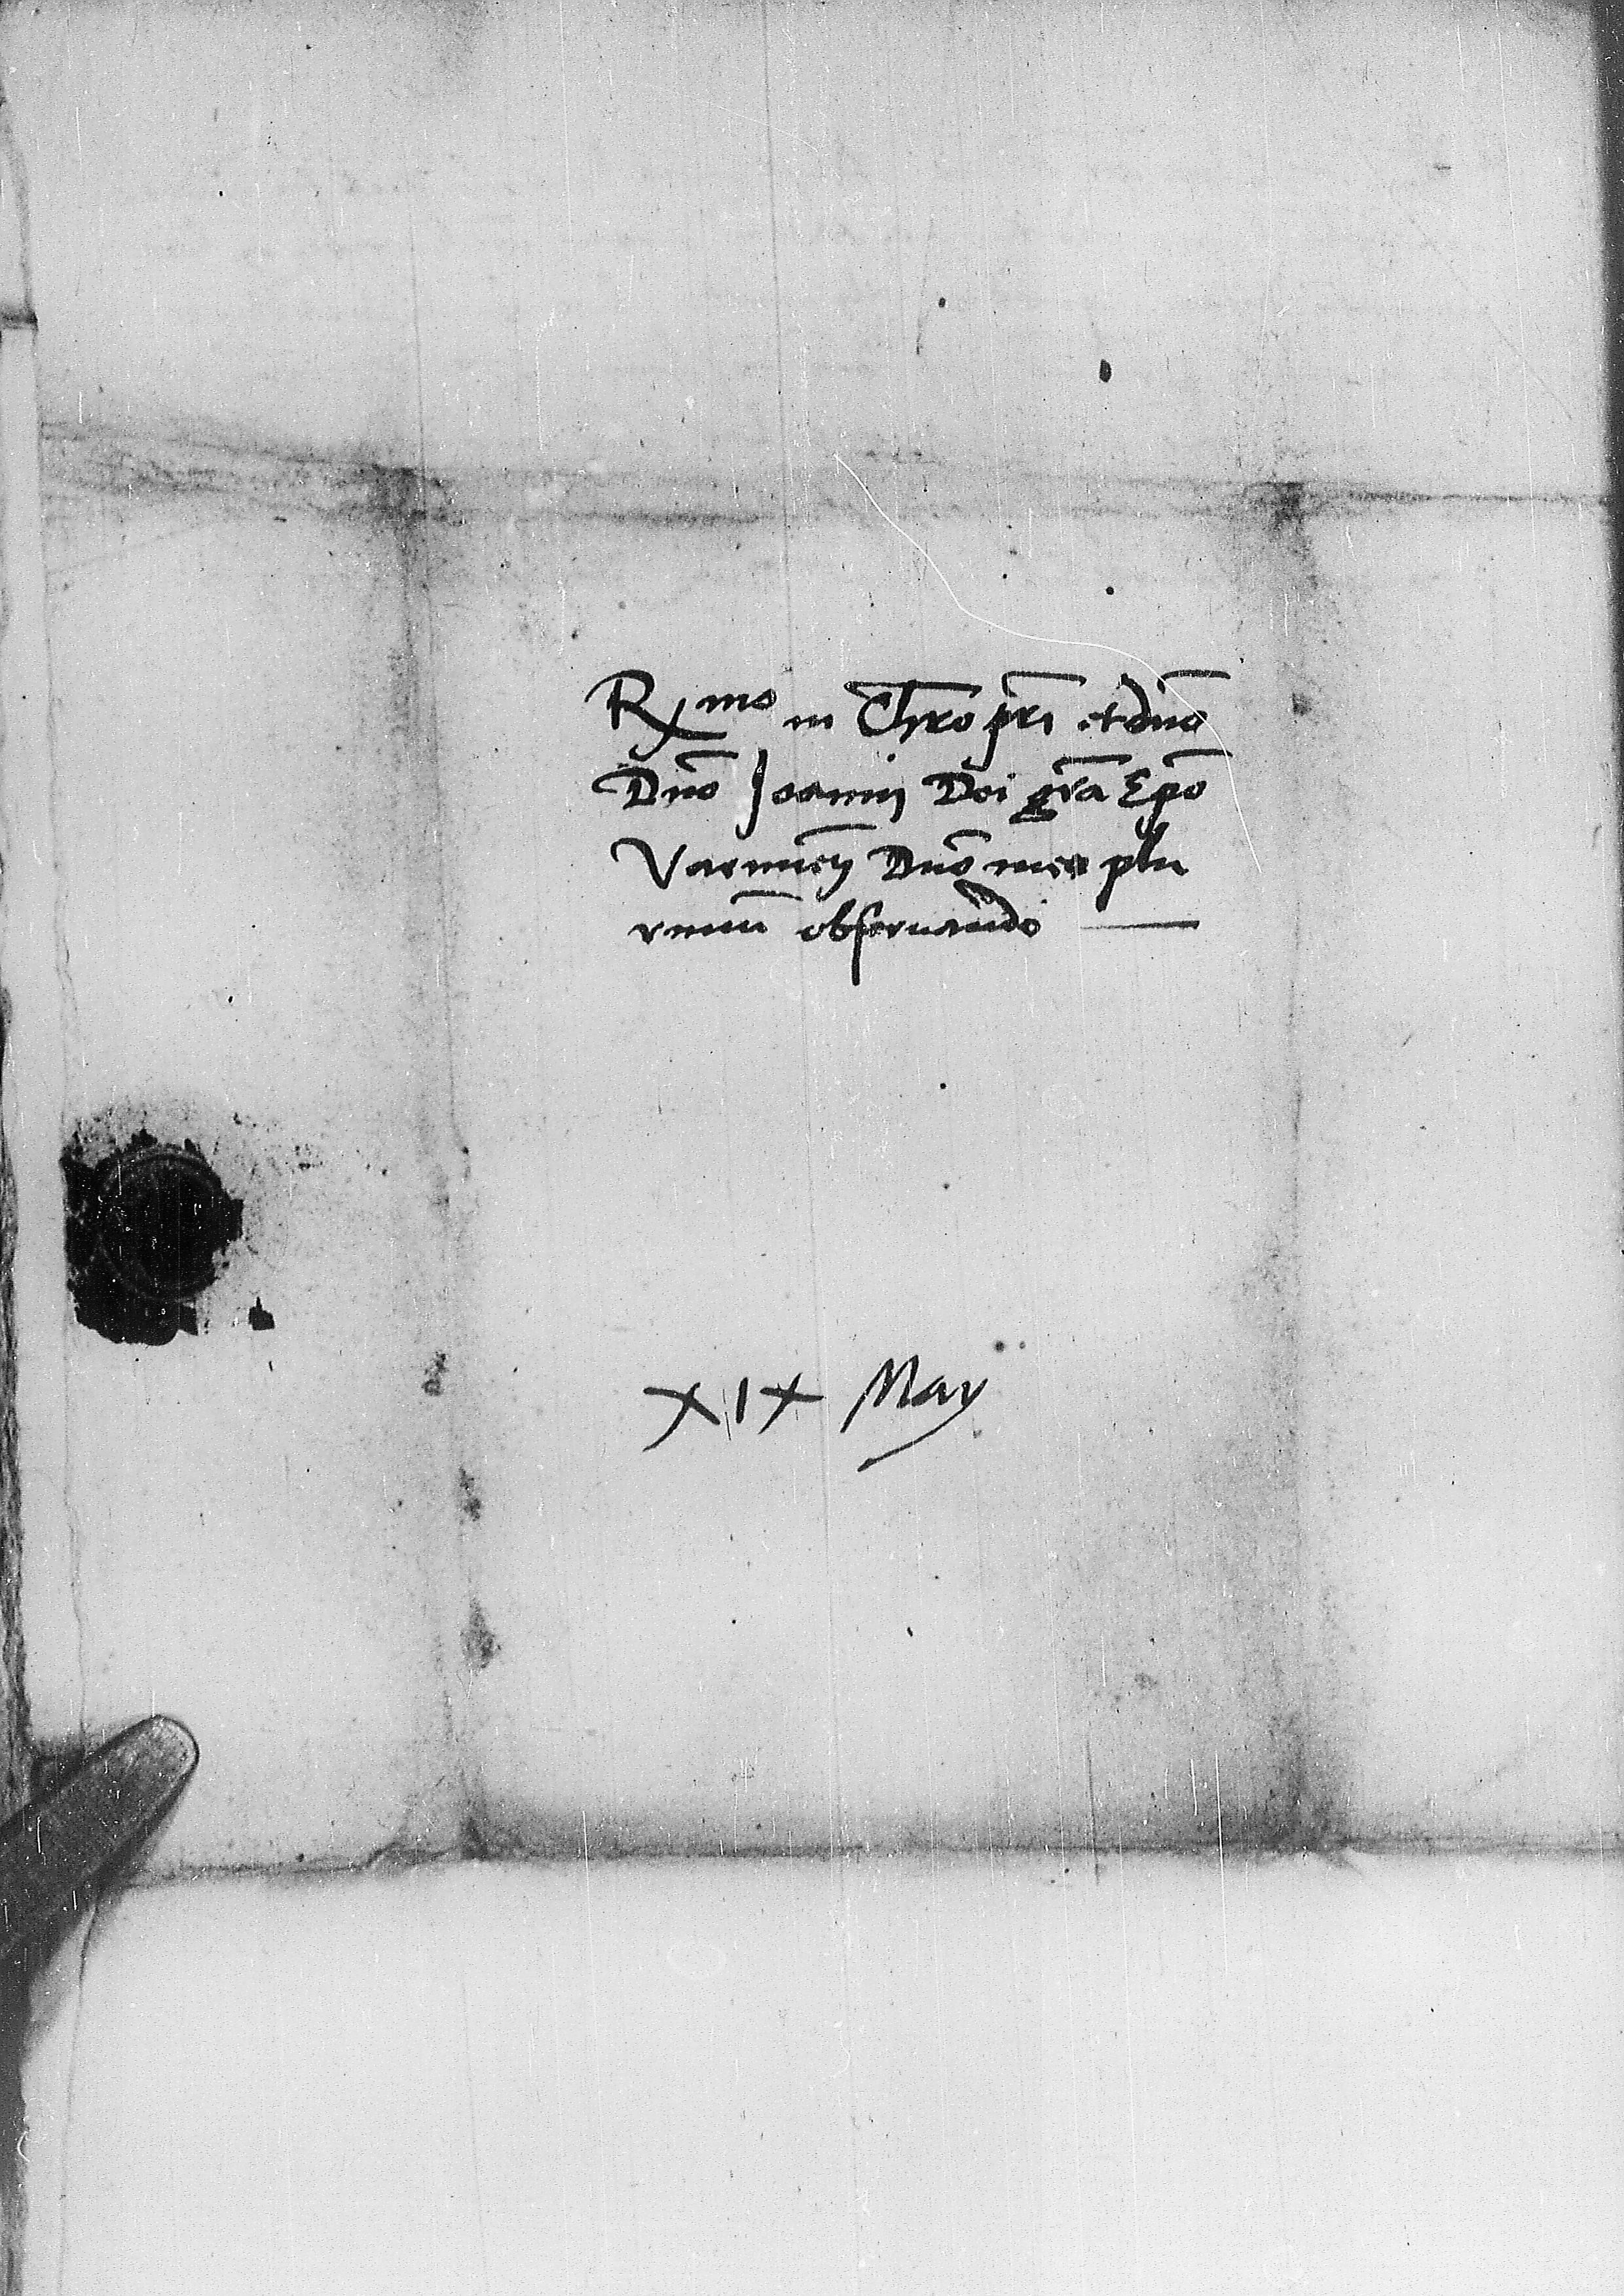 R^mo in Chro̅ pr̅i et dn̅o
Dn̅o Joanni Dei gr̅a Epo̅
Varmien̅ Dn̅o meo plu
rimu̅ obseruando —
XIX May